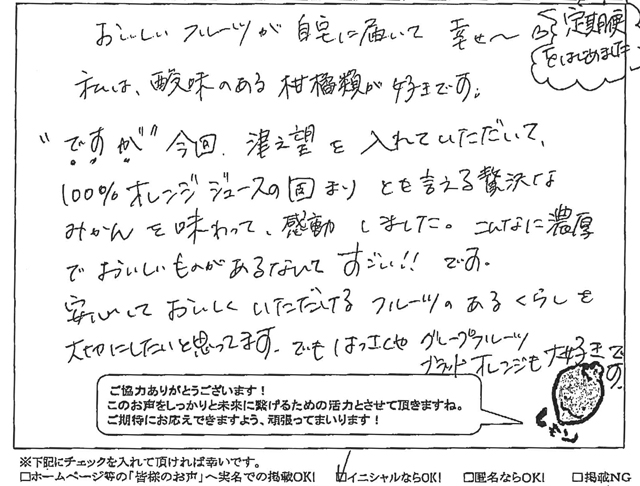 おいしいフルーツが自宅に届いて 幸せ〜
定期便
をはじめました
私は、酸味のある柑橘類が好きです。
"ですが"今回、津之望を入れていただいて、
100%オレンジジュースの固まりとも言える贅沢な
みかんを味わって、感動しました。こんなに濃厚
でおいしいものがあるなんてすごい!!です。
安心しておいしくいただけるフルーツのあるくらしを
大切にしたいと思ってます。でもはっさくやグレープフルーツ
ブラッドオレンジも大好きです。
ご協力ありがとうございます!
このお声をしっかりと未来に繋げるための活力とさせて頂きますね。
ご期待にお応えできますよう、頑張ってまいります!
※下記にチェックを入れて頂ければ幸いです。
□ホームページ等の「皆様のお声」へ実名での掲載OK! □イニシャルならOK! □匿名ならOK! □掲載NG